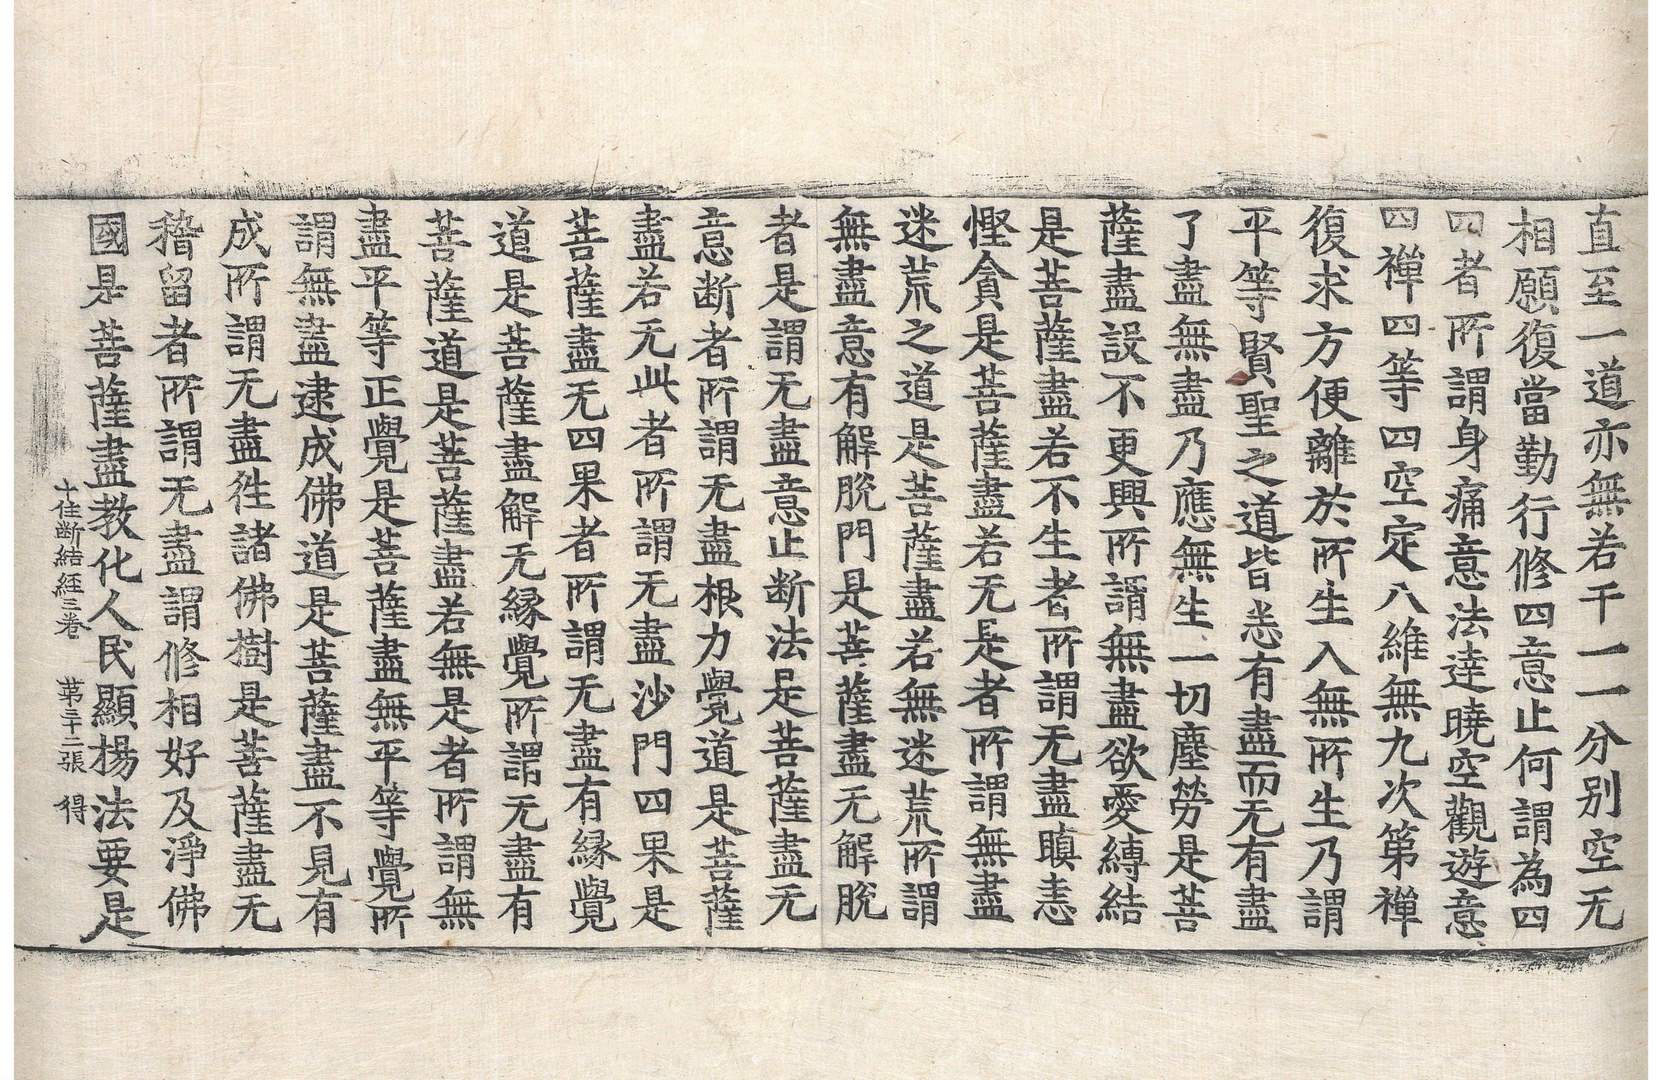 直至一道亦無若干一一分別空无
相願復當勤行修四意止何謂為四
四者所謂身痛意法逹曉空觀遊意
四禪四等四空定八維無九次第禪
復求方便離於所生入無所生乃謂
平等賢聖之道皆悉有盡而无有盡
了盡無盡乃應無生一切塵勞是菩
薩盡設不更興所謂無盡欲愛縛結
是菩薩盡若不生者所謂无盡瞋恚
慳貪是菩薩盡若无是者所謂無盡
迷荒之道是菩薩盡若無迷荒所謂
無盡意有解脫門是菩薩盡无解脫
者是謂无盡意止断法是菩薩盡无
意断者所謂无盡根力覺道是菩薩
盡若无此者所謂无盡沙門四果是
菩薩盡无四果者所謂无盡有緣覺
道是菩薩盡解无緣覺所謂无盡有
菩薩道是菩薩盡若無是者所謂無
盡平等正覺是菩薩盡無平等覺所
謂無盡逮成佛道是菩薩盡不見有
成所謂无盡徃諸佛樹是菩薩盡无
稽留者所謂无盡謂修相好及淨佛
國是菩薩盡教化人民顯揚法要是
十住断結經三卷 第三十二張 得